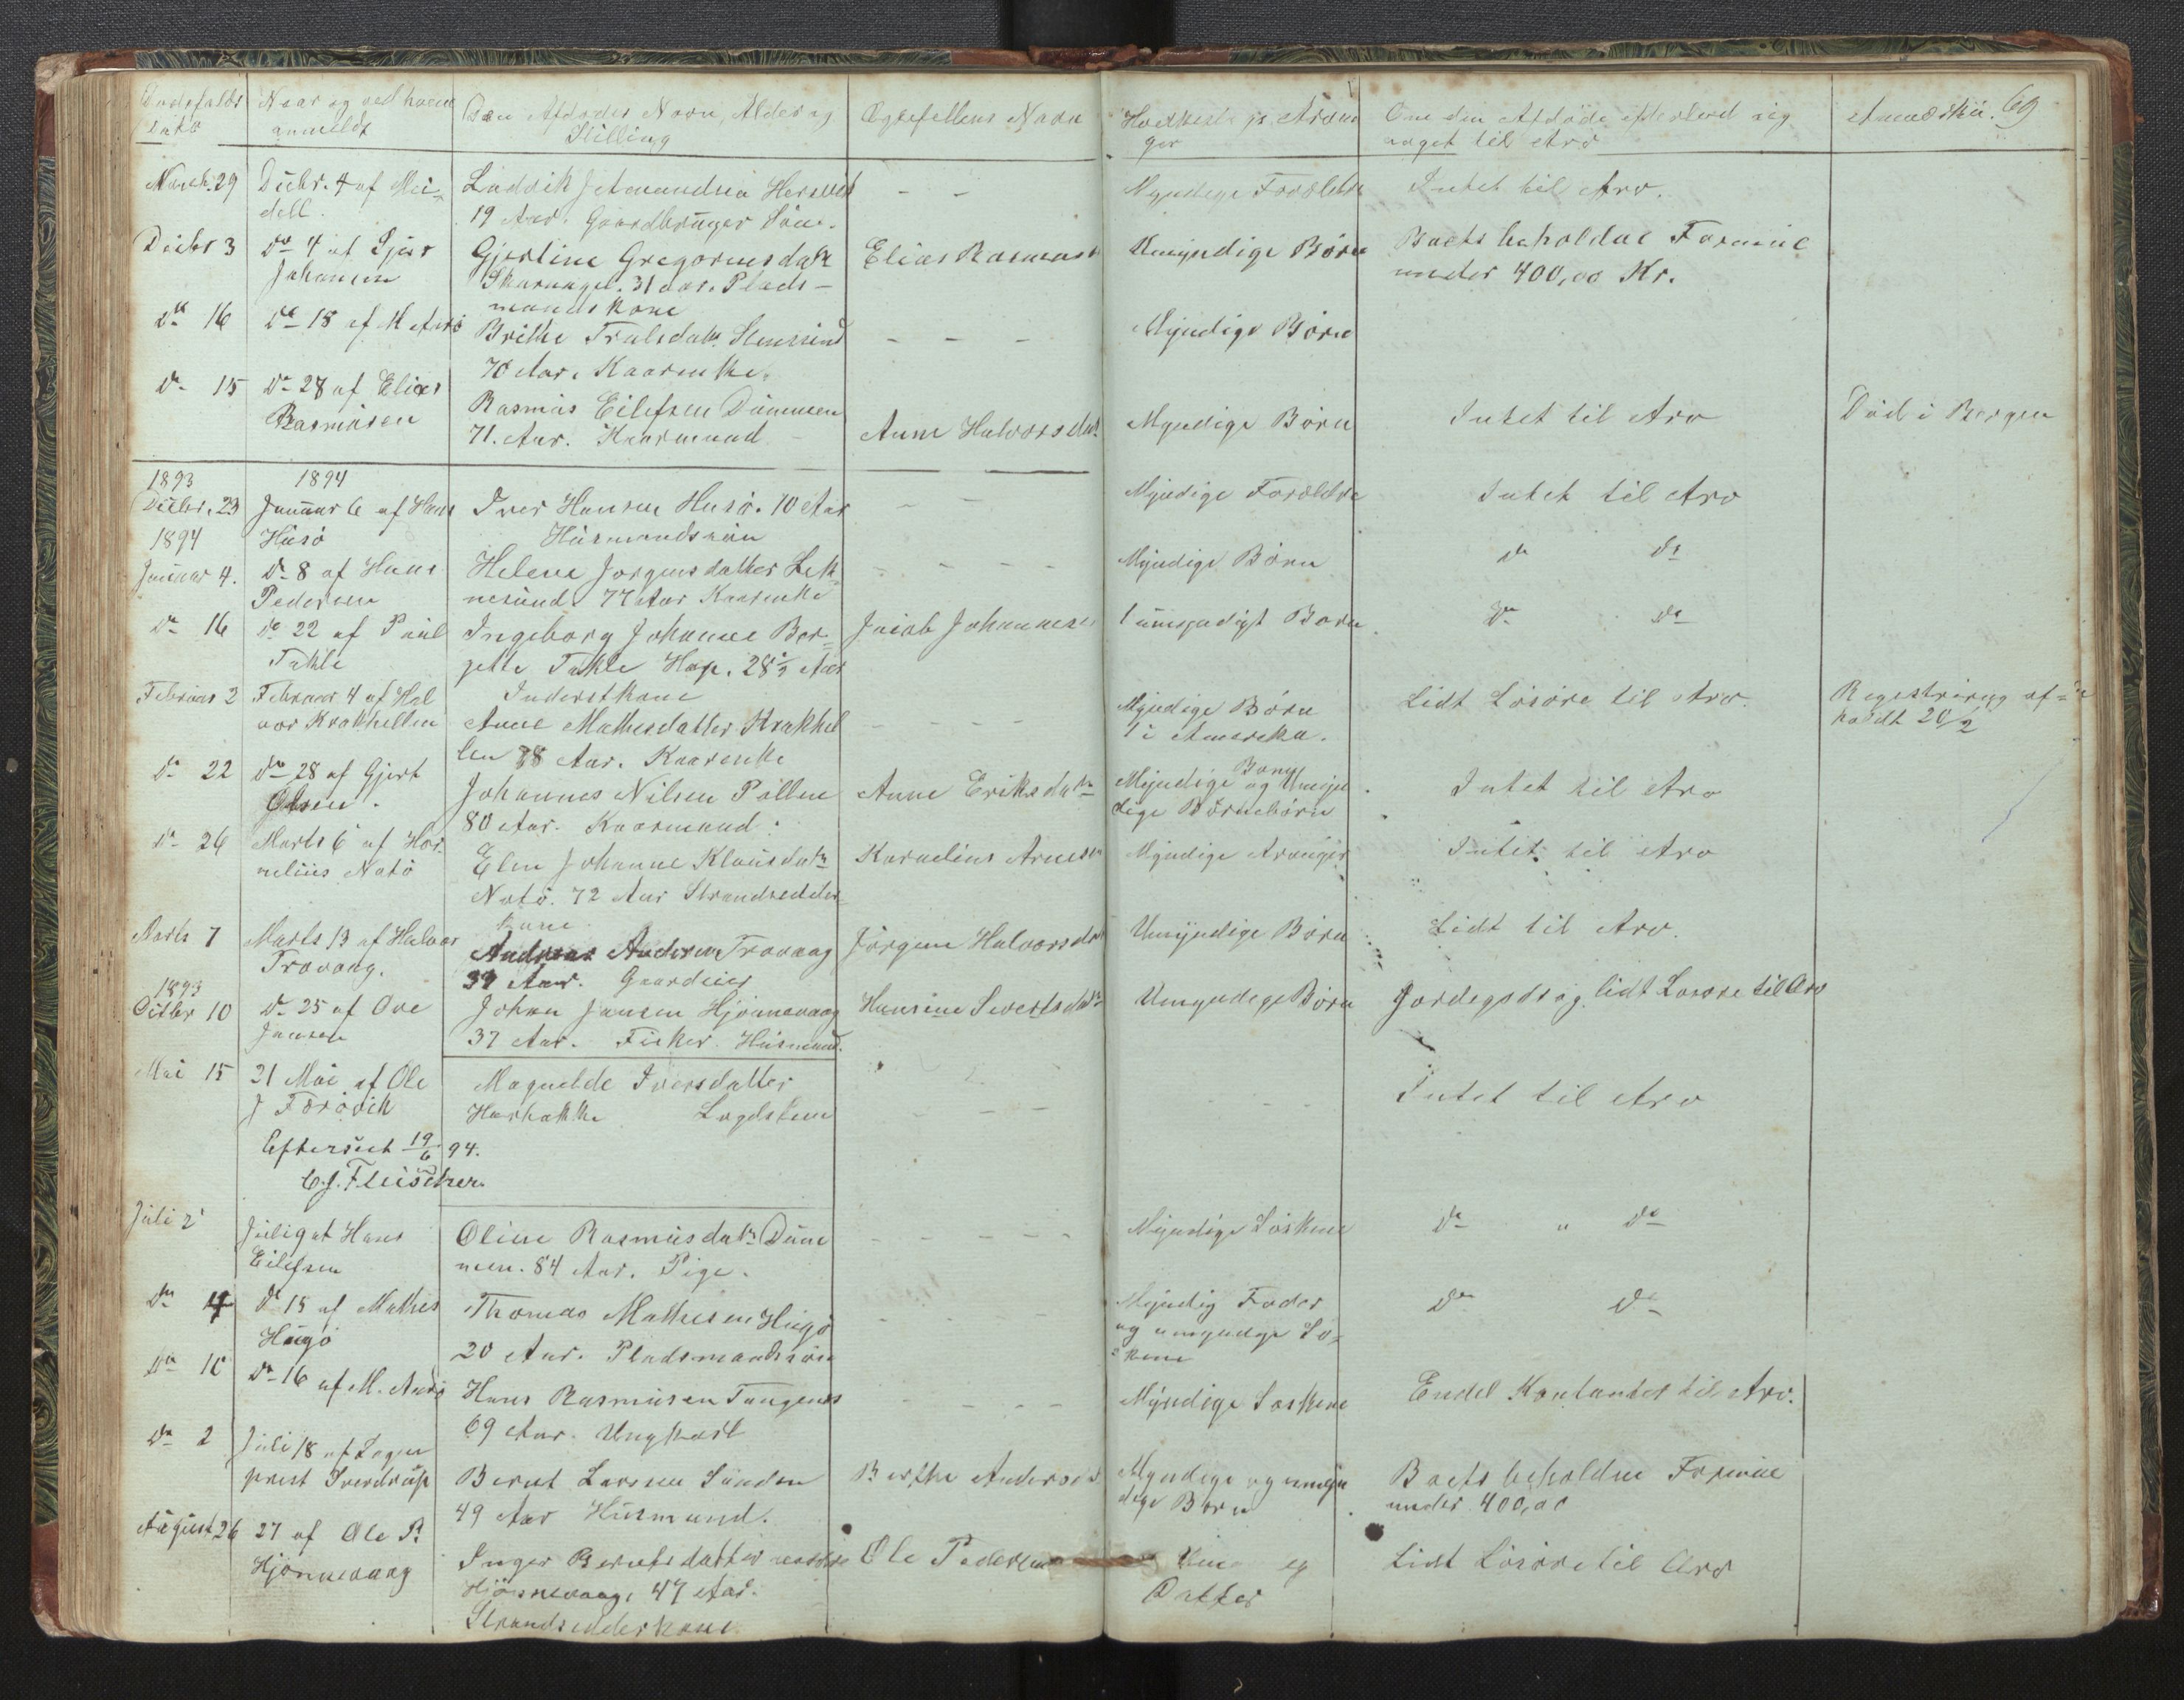 Dødsfalds Naar og ved hvem Den Afdødes Navn, Alder og Ægtefellens Navn Hvilkesto. Arvin Om den Afdøde efterlod sig Anmærkn. 69
Dato anmeldt Stilling ger noget til Arv
Noveb. 29 Decbr. 4 af Mei Ludvik J Amundsen Hersvik – – Myndige Forældre Intet til Arv.
dell. 19 Aar. Gaardbruger Søn.
Decbr 3 do 4 af Gjert Gjertine Gregoriusdatr Elias Rasmussen Umyndige Børn Boets beholdne Formue
Johansen 31 aar. Plads- under 400,00 Kr.
mandskone
do 16 do 18 af M Andø Brithe Trulsdatr Stensund – – – Myndige Børn
70 Aar. Kaarenke.
do 15 do 28 af Elias Rasmus Eilefsen Dummen Anne Halvorsdatr Myndige Børn Intet til Arv Død i Bergen
Rasmusen 71. Aar. Kaarmand –
1893 1894
Decbr. 23 Januar 6 af Hans Iver Hansen Husø. 10 Aar – – Myndige Forældre Intet til Arv
1894 Husø Husmandssøn
Januar 4. do 8 af Hans Helene Jørgensdatter Lek – – – – Myndige Børn do do
Pedersen nesund. 77 Aar Kaarenke
do 16 do 22 af Paul Ingeborg Johanne Ber- Jacob Johannesen 1 umyndigt Barn do do
Takle gette Takle Hop. 28½ Aar
Inderstkone
Februar 2 Februar 4 af Hal Anne Mathesdatter Krakhel – – – – Myndige Børn Lidt Løsøre til Arv. Regestrering af-
vor Krakhellen len 78 Aar. Kaarenke 1 i Amerika. holdt 20/2
do 22 do 28 af Gjert Johannes Nilsen Pollen Anne Eriksdatr Myndige Børn og Umyn Intet til Arv
Olsen. 80 Aar. Kaarmand. dige Børnebørn
do 26 Marts 6 af Kor- Elen Johanne Klausdatr Kornelius Arnesen Myndige Arvinger Intet til Arv
nelius Notø Notø. 72 Aar Strandsedder
kone
Marts 7 Marts 13 af Halvor Andreas Andersen Trovaag Jørgine Halvorsdatr Umyndige Børn Lidt til Arv.
Trovaag. 39 Aar. Gaardeier
1893
Octbr 10 do 25 af Ove Johan Jansen Hjønnevaag Hansine Sivertsdatr Umyndige Børn Jordegods og lidt Løsøre til Arv
Jansen 37 Aar. Fisker. Husmand.
Mai 15 21 Mai af Ole Magnilde Iversdatter – – – – – – Intet til Arv
J Førøvik Lægdslem
Efterseet 19/6 94.
C. J. Fleischer.
Juli 2 Juli 9 at Hans Oline Rasmusdatr Dum – – – – – Myndige Søskene do " do
Eilefsen men. 84 Aar. Pige.
do 4 do 15 af Mathis Thomas Mathesen Hugø – – – Myndig Fader do do
Hugø 20 Aar. Pladsmandssøn og umyndige Sø-
skene
do 10 do 16 af M. Andø Hans Rasmusen Tangenes – – – – Myndige Søskene Endel Kontanter til Arv.
69 Aar. Ungkarl
do 2 Juli 18 af Sogne Bernt Larsen Sanden Berthe Andersdr Myndige og umyn Boets beholdne Formue
prest Sverdrup 49 Aar Husmand. dige Børn under 400,00
August 26 27 af Ole P. Inger Berntsdatter Ole Pedersen Datter Lidt Løsøre til Arv
Hjønnevaag Hjønnevaag. 47 Aar.
Strandsedderkone